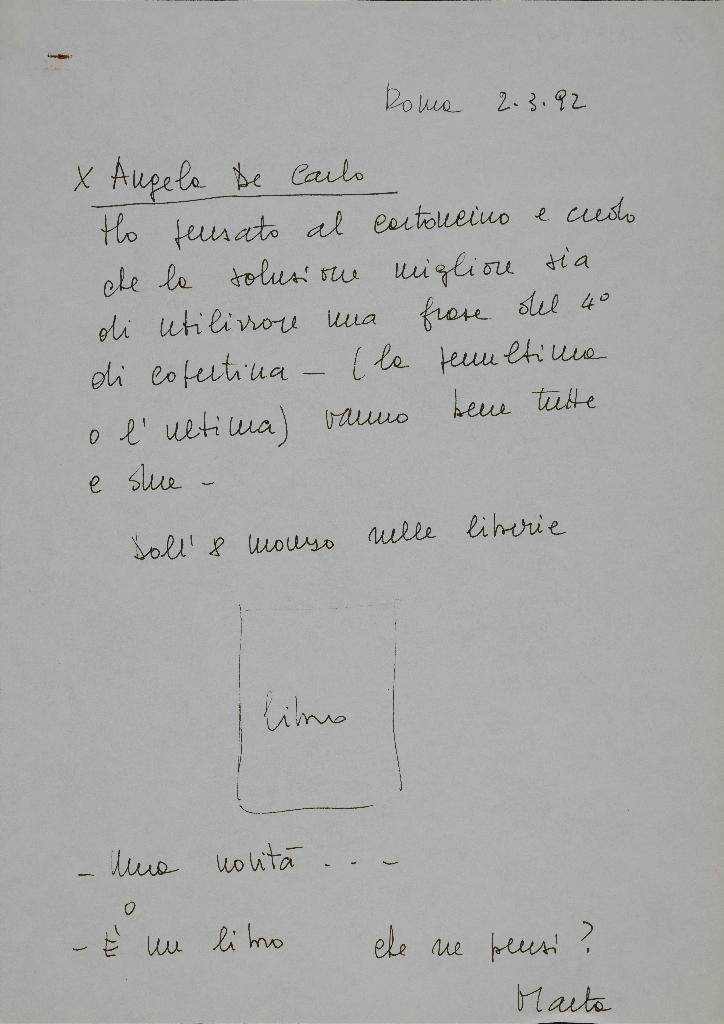 Roma 2.3.92
X Angela De Carlo
Ho pensato al cartoncino e credo
che la soluzione migliore sia
di utilizzare una frase del 4°
di copertina – (la penultima
o l'ultima) vanno bene tutte
e due –
Dall'8 marzo nelle librerie
libro
– Una novità . . . –
o
– È un libro che ne pensi?
Marta